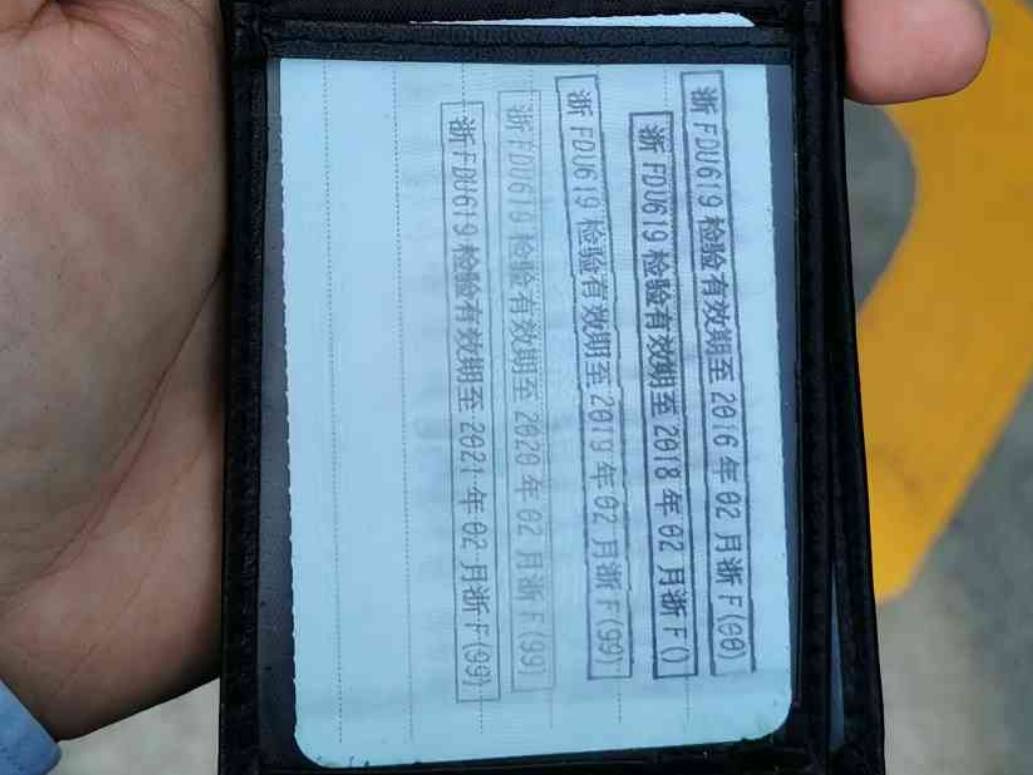 浙FDU619检验有效期至2016年02月浙F(00)
浙FDU619检验有效期至2018年02月浙F()
浙FDU619检验有效期至2019年02月浙F(99)
浙FDU619检验有效期至2020年02月浙F(99)
浙FDU619检验有效期至2021年02月浙F(99)